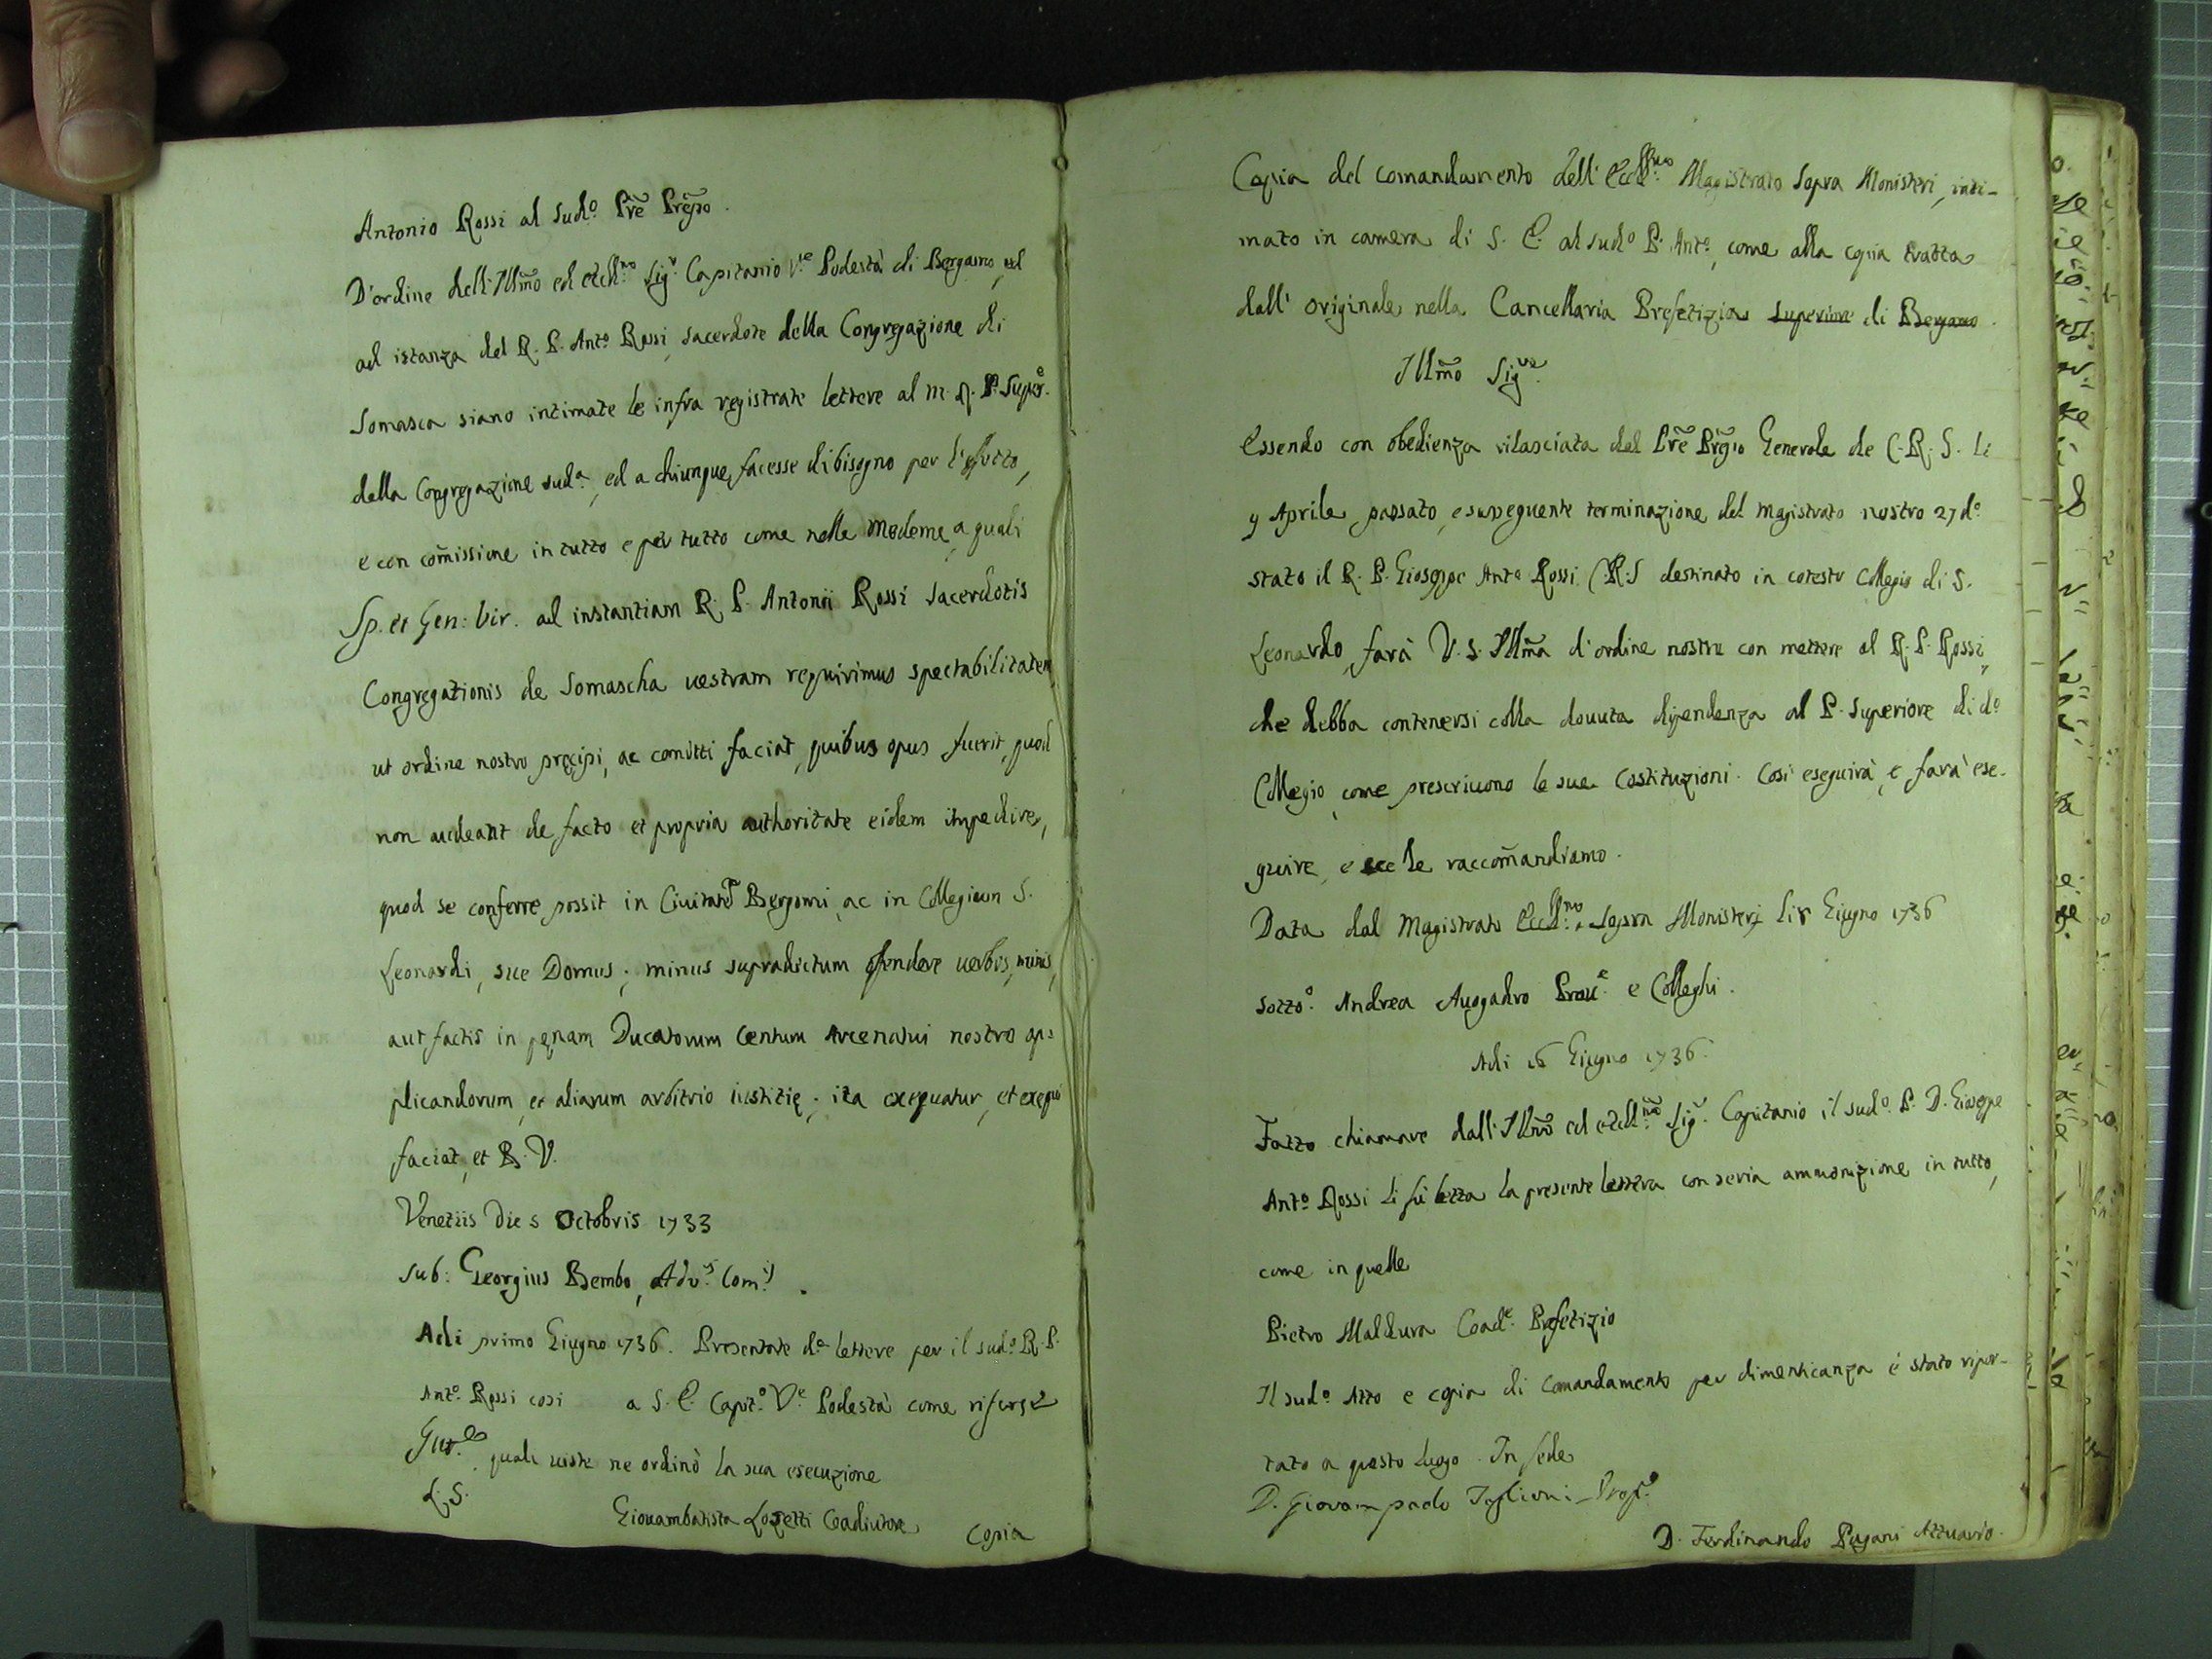 Antonio Rossi al sudº. Pre Prepto.
D'ordine dell'Illmo ed eccllmo Sigr. Capitanio V.e Podestà di Bergamo, ed
ad istanza del R. P. Antº Rossi, sacerdote della Congregazione di
Somasca siano intimate le infra registrate lettere al m. R. P. Super.e
della Congregazione suda., ed a chiunque facesse di bisogno per l'effetto,
e con comissione in tutto e per tutto come nelle medeme, a quali
Sp. et Gen: Vir. ad instantiam R. P. Antonii Rossi Sacerdotis
Congregationis de Somascha uestram requirimus spectabilitatem
ut ordine nostro precipi, ac comitti faciat, quibus opus fuerit, quod
non audeant de facto et propria authoritate eidem impedire,
quod se conferre possit in Ciuitate Bergomi, ac in Collegium S.
Leonardi, sue Domus; minus supradictum offendere uerbis, minis,
aut factis in penam Ducatorum Centum Arcenatui nostro ap:
plicandorum, et aliarum arbitrio iustitie; ita exequatur, et exequi
faciat, et B. V.
Venetiis Die 5 Octobris 1733
Sub: Georgius Bembo, Advs. Comi.
Adi primo Giugno 1736. Presentate de. lettere per il sudº. R. P.
Antº. Rossi cosi a S. E. Capitº. V.e Podestà come risurse
quali uiste ne ordinò la sua esecuzione
L. S.
Giouambatista Lozetti Coadiutore
Copia
Copia del comandamento dell'Eccllmo. Magistrato sopra Monisteri, inti-
mato in camera di S. E. al sudº P. Antº, come alla copia tratta
dall'originale nella Cancellaria Prefetizia superiore di Bergamo.
Illmo Sigre.
Essendo con obedienza rilasciata dal Pre Prepto Generale de C. R. S. li
9 Aprile passato, e susseguente terminazione del Magistrato nostro 27 dº.
stato il R. P. Gioseppe Antº Rossi C.R.S destinato in cotesto Collegio di S.
Leonardo, farà V. S. Illma d'ordine nostro con mettere al R. P. Rossi,
che debba contenersi colla douuta dipendenza al P. Superiore di dº
Collegio, come prescriuono le sue Costituzioni. Cosi eseguirà, e farà ese-
guire, e le raccomandiamo.
Data dal Magistrato Eccllmo. sopra Monisterj li Giugno 1736
sottoº. Andrea Auogadro Prou.e e Colleghi.
Adi 16 Giugno 1736.
Fatto chiamare dall'Illmo ed eccllmo Sigr. Capitanio il sudº. P. D. Gioseppe
Antº Rossi li fù letta la presente lettera con seria ammonizione in tutto,
come in quelle
Pietro Maldura Coad.e Prefetizio
Il sudº. Atto e copia di Comandamento per dimenticanza è stato ripor-
tato a questo luogo. In fede
D. Giovampaolo Taglioni
D. Ferdinando Pagani Attuario.